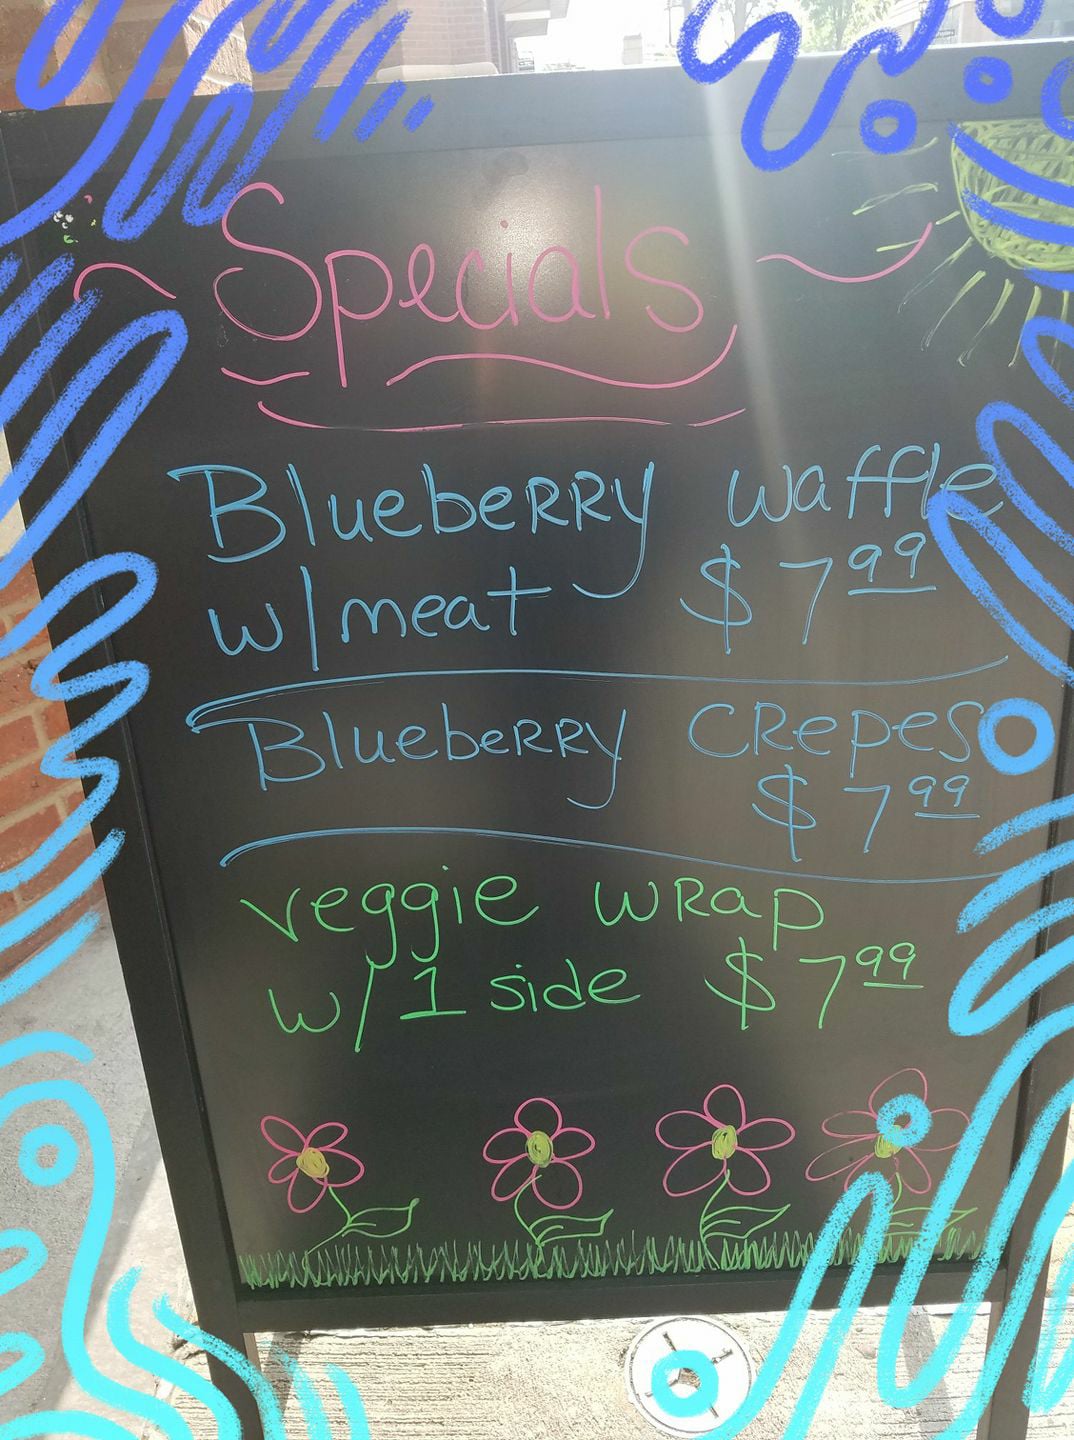 Specials
Blueberry waffle
w/meat $7.99
Blueberry crepes
$7.99
veggie wrap
w/1 side $7.99